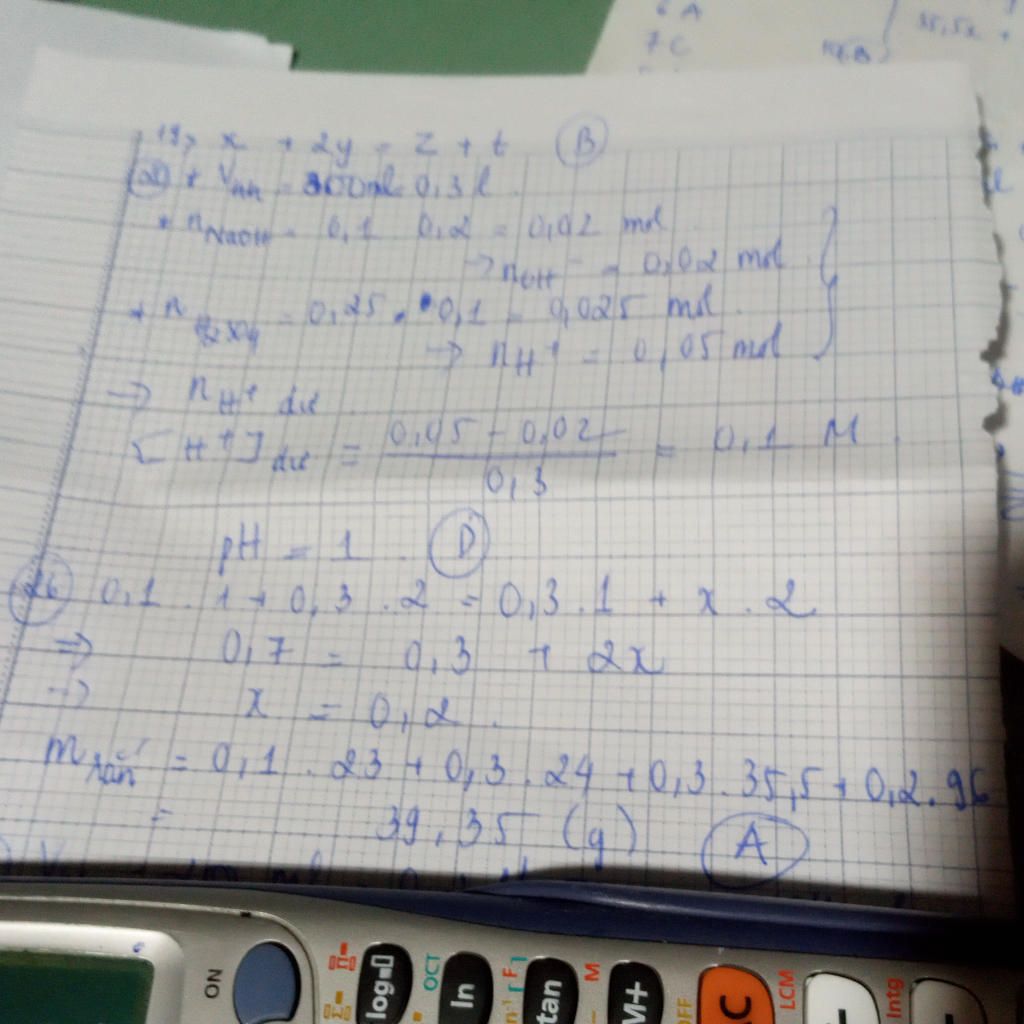 6 A
7 C
35,5x +
19> x + 2y = z + t (B)
(20) + Vhh = 300ml = 0,3 l
* nNaOH = 0,1 0,2 = 0,02 mol
→ nOH⁻ = 0,02 mol
+ nH2SO4 = 0,25 . 0,1 = 0,025 mol
→ nH⁺ = 0,05 mol
→ nH⁺ dư
[H⁺] dư = (0,05 - 0,02) / 0,3 = 0,1 M
pH = 1 (D)
(26) 0,1 . 1 + 0,3 . 2 = 0,3 . 1 + x . 2
⇒ 0,7 = 0,3 + 2x
→ x = 0,2.
m rắn = 0,1 . 23 + 0,3 . 24 + 0,3 . 35,5 + 0,2 . 96
= 39,35 (g) (A)
ON
log
OCT
ln
F
tan
M
M+
OFF
AC
LCM
Intg